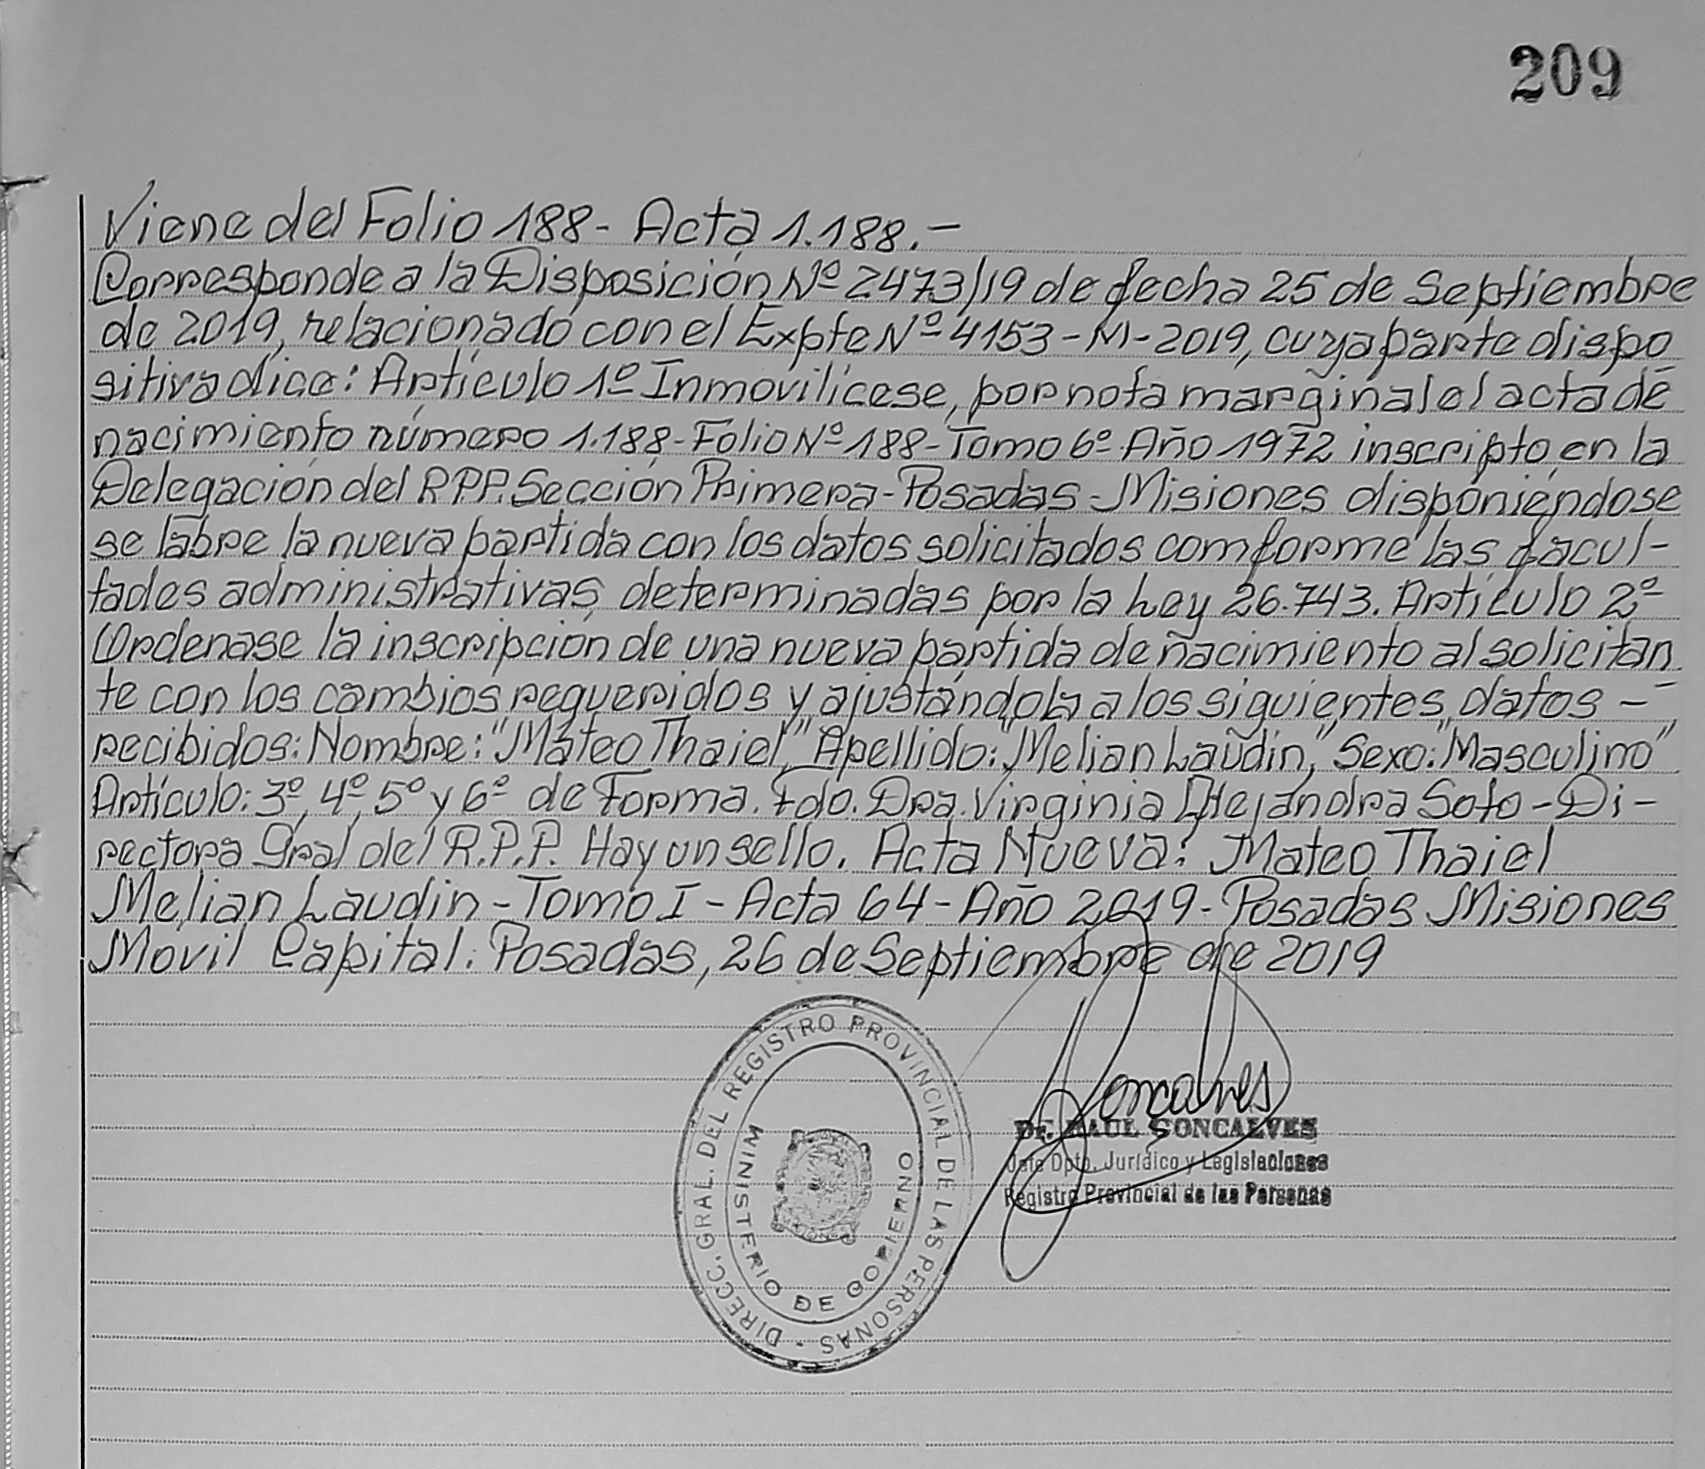 209
Viene del Folio 188- Acta 1.188.-
Corresponde a la Disposición Nº 2473/19 de fecha 25 de Septiembre
de 2019, relacionado con el Expte Nº 4153-M-2019, cuya parte dispo
sitiva dice: Artículo 1º Inmovilícese, por nota marginal el acta de
nacimiento número 1.188-Folio Nº 188-Tomo 6º Año 1972 inscripto en la
Delegación del RPP. Sección Primera-Posadas-Misiones disponiéndose
se labre la nueva partida con los datos solicitados comforme las facul-
tades administrativas determinadas por la Ley 26.743. Artículo 2º
Ordenase la inscripción de una nueva partida de nacimiento al solicitan
te con los cambios requeridos y ajustándola a los siguientes datos -
recibidos: Nombre: "Mateo Thaiel," Apellido: "Melian Laudin," Sexo: "Masculino"
Artículo: 3º, 4º, 5º y 6º de Forma. Fdo. Dra. Virginia Alejandra Soto-Di-
rectora Gral del R.P.P. Hay un sello. Acta Nueva: Mateo Thaiel
Melian Laudin-Tomo I-Acta 64-Año 2019-Posadas Misiones
Móvil Capital. Posadas, 26 de Septiembre de 2019
DIRECC. GRAL. DEL REGISTRO PROVINCIAL DE LAS PERSONAS -
MINISTERIO DE GOBIERNO
Goncalves
Dr. RAUL GONCALVES
Jefe Dpto. Jurídico y Legislaciones
Registro Provincial de las Personas